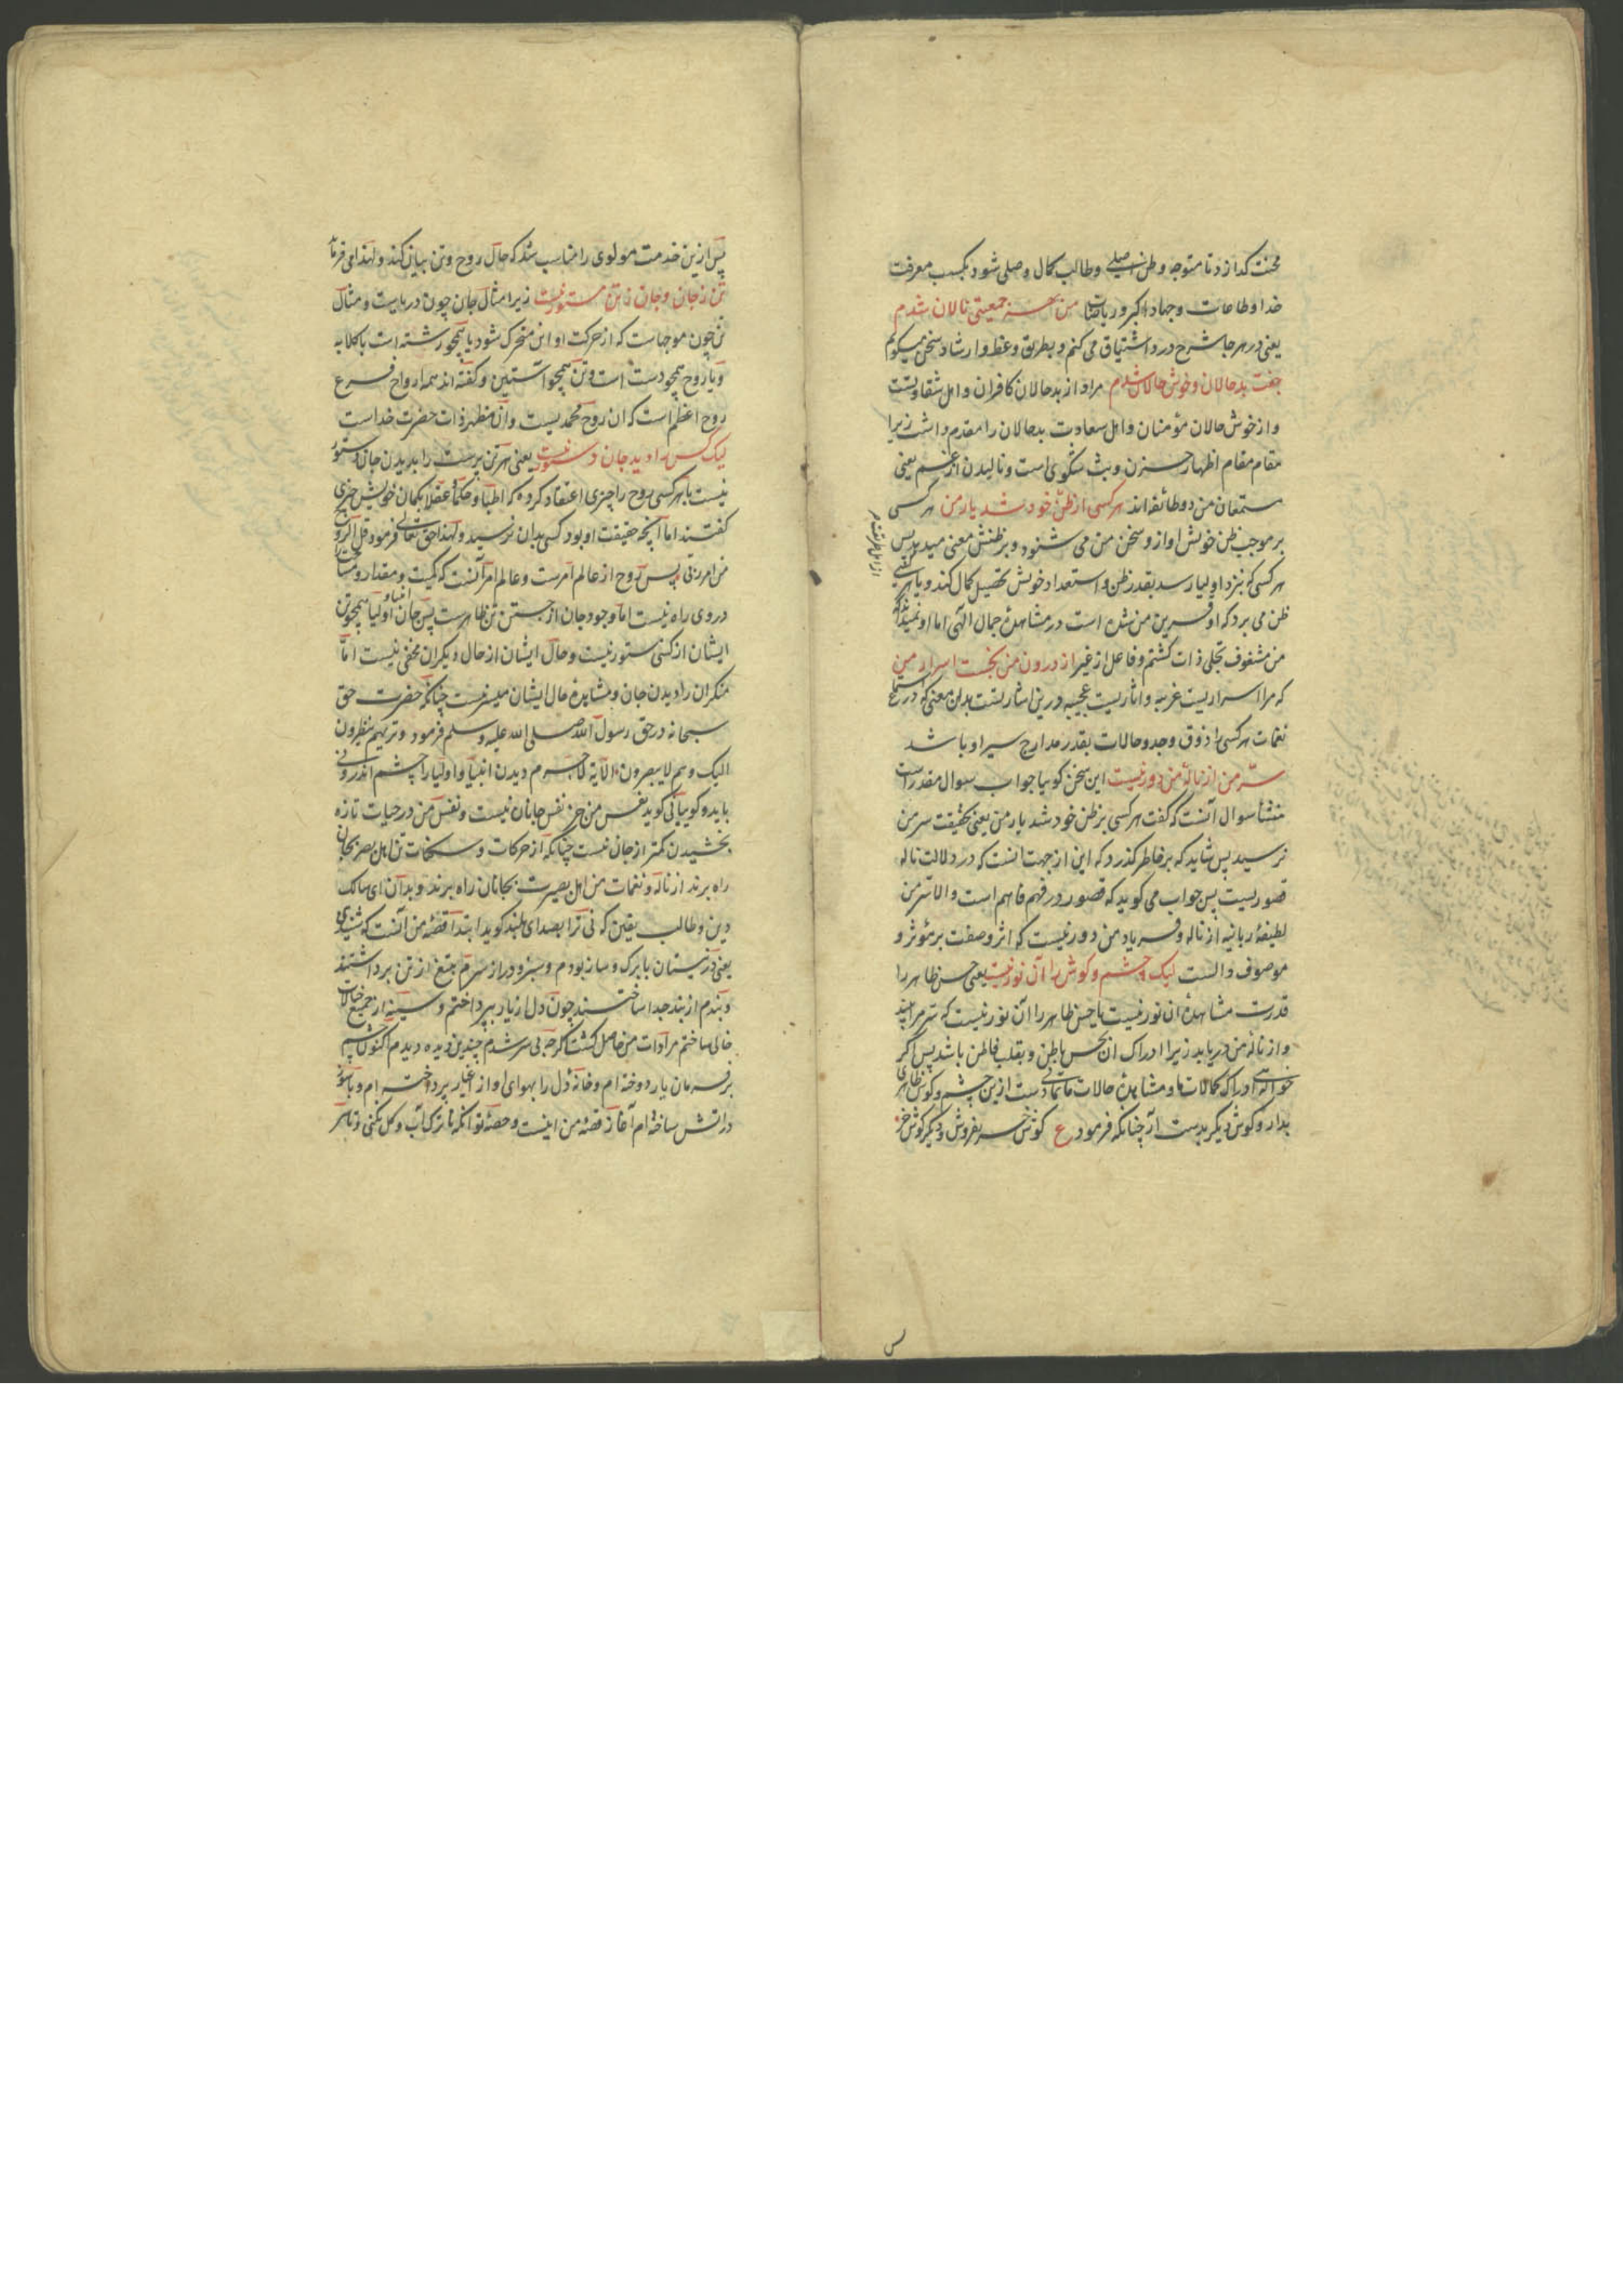 محنت کدازد تا متوجه وطن اصلی وطالب کمال وصلی شود بکسب معرفت
خدا وطاعات وجهاد اکبر وریاضات من بهر جمعیتی نالان شدم
یعنی در هر جا شرح درد اشتیاق می کنم وبطریق وعظ وارشاد سخن میکویم
جفت بدحالان وخوش حالان شدم مراد از بدحالان کافران واهل شقاوتست
واز خوش حالان مؤمنان واهل سعادت بدحالان را مقدم داشت زیرا
مقام مقام اظهار حزن وبث شکوی است ونالیدن از غم یعنی
مستمعان من دو طائفه اند هر کسی از ظن خود شد یار من هر کسی
بر موجب ظن خویش اواز وسخن من می شنود وبر ظنش معنی میدهد پس
هر کسی که بنزد اولیا رسد بقدر ظن واستعداد خویش تحصیل کمال کند ویا هر کسی
ظن می برد که او قرین من شده است در مشاهدهٔ جمال الهی اما او نمیداند که
من مشغوف تجلی ذات کشتم وفاعل از غیر از درون من نجست اسرار من
که مرا اسراریست غریبه واثاریست عجیبه درین اشارتست بدان معنی که در استماع
نغمات هر کسی را ذوق ووجد وحالات بقدر مدارج سیر او باشد
سر من از نالهٔ من دور نیست این سخن کوییا جواب سوال مقدر است
منشأ سوال آنست که کفت هر کسی بر ظن خود شد یار من یعنی بحقیقت سر من
نرسید پس شاید که بر خاطر کذرد که این از جهت انست که در دلالت ناله
قصوریست پس جواب می کوید که قصور در فهم فاهم است والا سر من
لطیفهٔ ربانیه از ناله وفریاد من دور نیست که اثر وصفت بر مؤثر و
موصوف دالست لیک چشم وکوش را آن نور نیست یعنی حس ظاهر را
قدرت مشاهدهٔ ان نور نیست یا حس ظاهر را آن نور نیست که سر مرا بیند
واز نالهٔ من دریابد زیرا ادراک ان بحس باطن وبقلب فاطن باشد پس اگر
خواهی ادراک کمالات ما ومشاهدهٔ حالات ما تمامی دست ازین چشم وکوش ظاهری
بدار وکوش دیکر بدست آر چنانکه فرمود ع کوش خر بفروش ودیکر کوش خر
پس ازین خدمت مولوی را مناسب شد که حال روح وتن بیان کند ولهذا می فرماید
تن ز جان وجان ز تن مستور نیست زیرا مثال جان چون دریاست ومثال
تن چون موجهاست که از حرکت او این متحرک شود یا همچو رشته است با کلابه
ویا روح همچو دست است وتن همچو استین وکفته اند همه ارواح فرع
روح اعظم است که ان روح محمدیست وان مظهر ذات حضرت خداست
لیک کس را دید جان دستور نیست یعنی هر تن پرست را بدیدن جان دستور
نیست یا هر کسی روح را چیزی اعتقاد کرده که اطبا وحکما وعقلا بکمان خویش چیزی
کفتند اما آنچه حقیقت او بود کسی بدان نرسید ولهذا حق تعالی فرمود قل الروح
من امر ربی پس روح از عالم امرست وعالم امر آنست که کمیت ومقدار ومساحت را
در وی راه نیست اما وجود جان از جستن تن ظاهرست پس جان انبیا و اولیا همچو تن
ایشان از کسی مستور نیست وحال ایشان از حال دیکران مخفی نیست اما
منکران را دیدن جان ومشاهدهٔ حال ایشان میسر نیست چنانکه حضرت حق
سبحانه در حق رسول الله صلی الله علیه وسلم فرمود وتریهم ینظرون
الیک وهم لا یبصرون الآیة لاجرم دیدن انبیا واولیا را چشم اندرونی
باید وکوییا نی کوید نفس من جز نفس جانان نیست ونفس من در حیات تازه
بخشیدن کمتر از جان نیست چنانکه از حرکات وسکنات تن اهل بصر بجان
راه برند از ناله ونغمات من اهل بصیرت بجانان راه برند وبدان ای سالک
دین وطالب یقین که نی ترا بصدای بلند کوید ابتدا قصهٔ من آنست که شنیدی
یعنی در نیستان با برک وساز بودم وسبز ودراز سرم بتیغ از تن برداشتند
وبندم از بند جدا ساختند چون دل از یاد بپرداختم وسینه از جمیع خیالات
خالی ساختم مرادات من حاصل کشت کرچه بی سر شدم چندین دیده دیدم اکنون چشم
بر فرمان یار دوخته ام وخانهٔ دل را بهوای او از اغیار پرداخته ام وبا سوز
در اتش ساخته ام آغاز قصهٔ من اینست وحصهٔ تو آنکه تا ترک آب وکل نکنی وتا سر